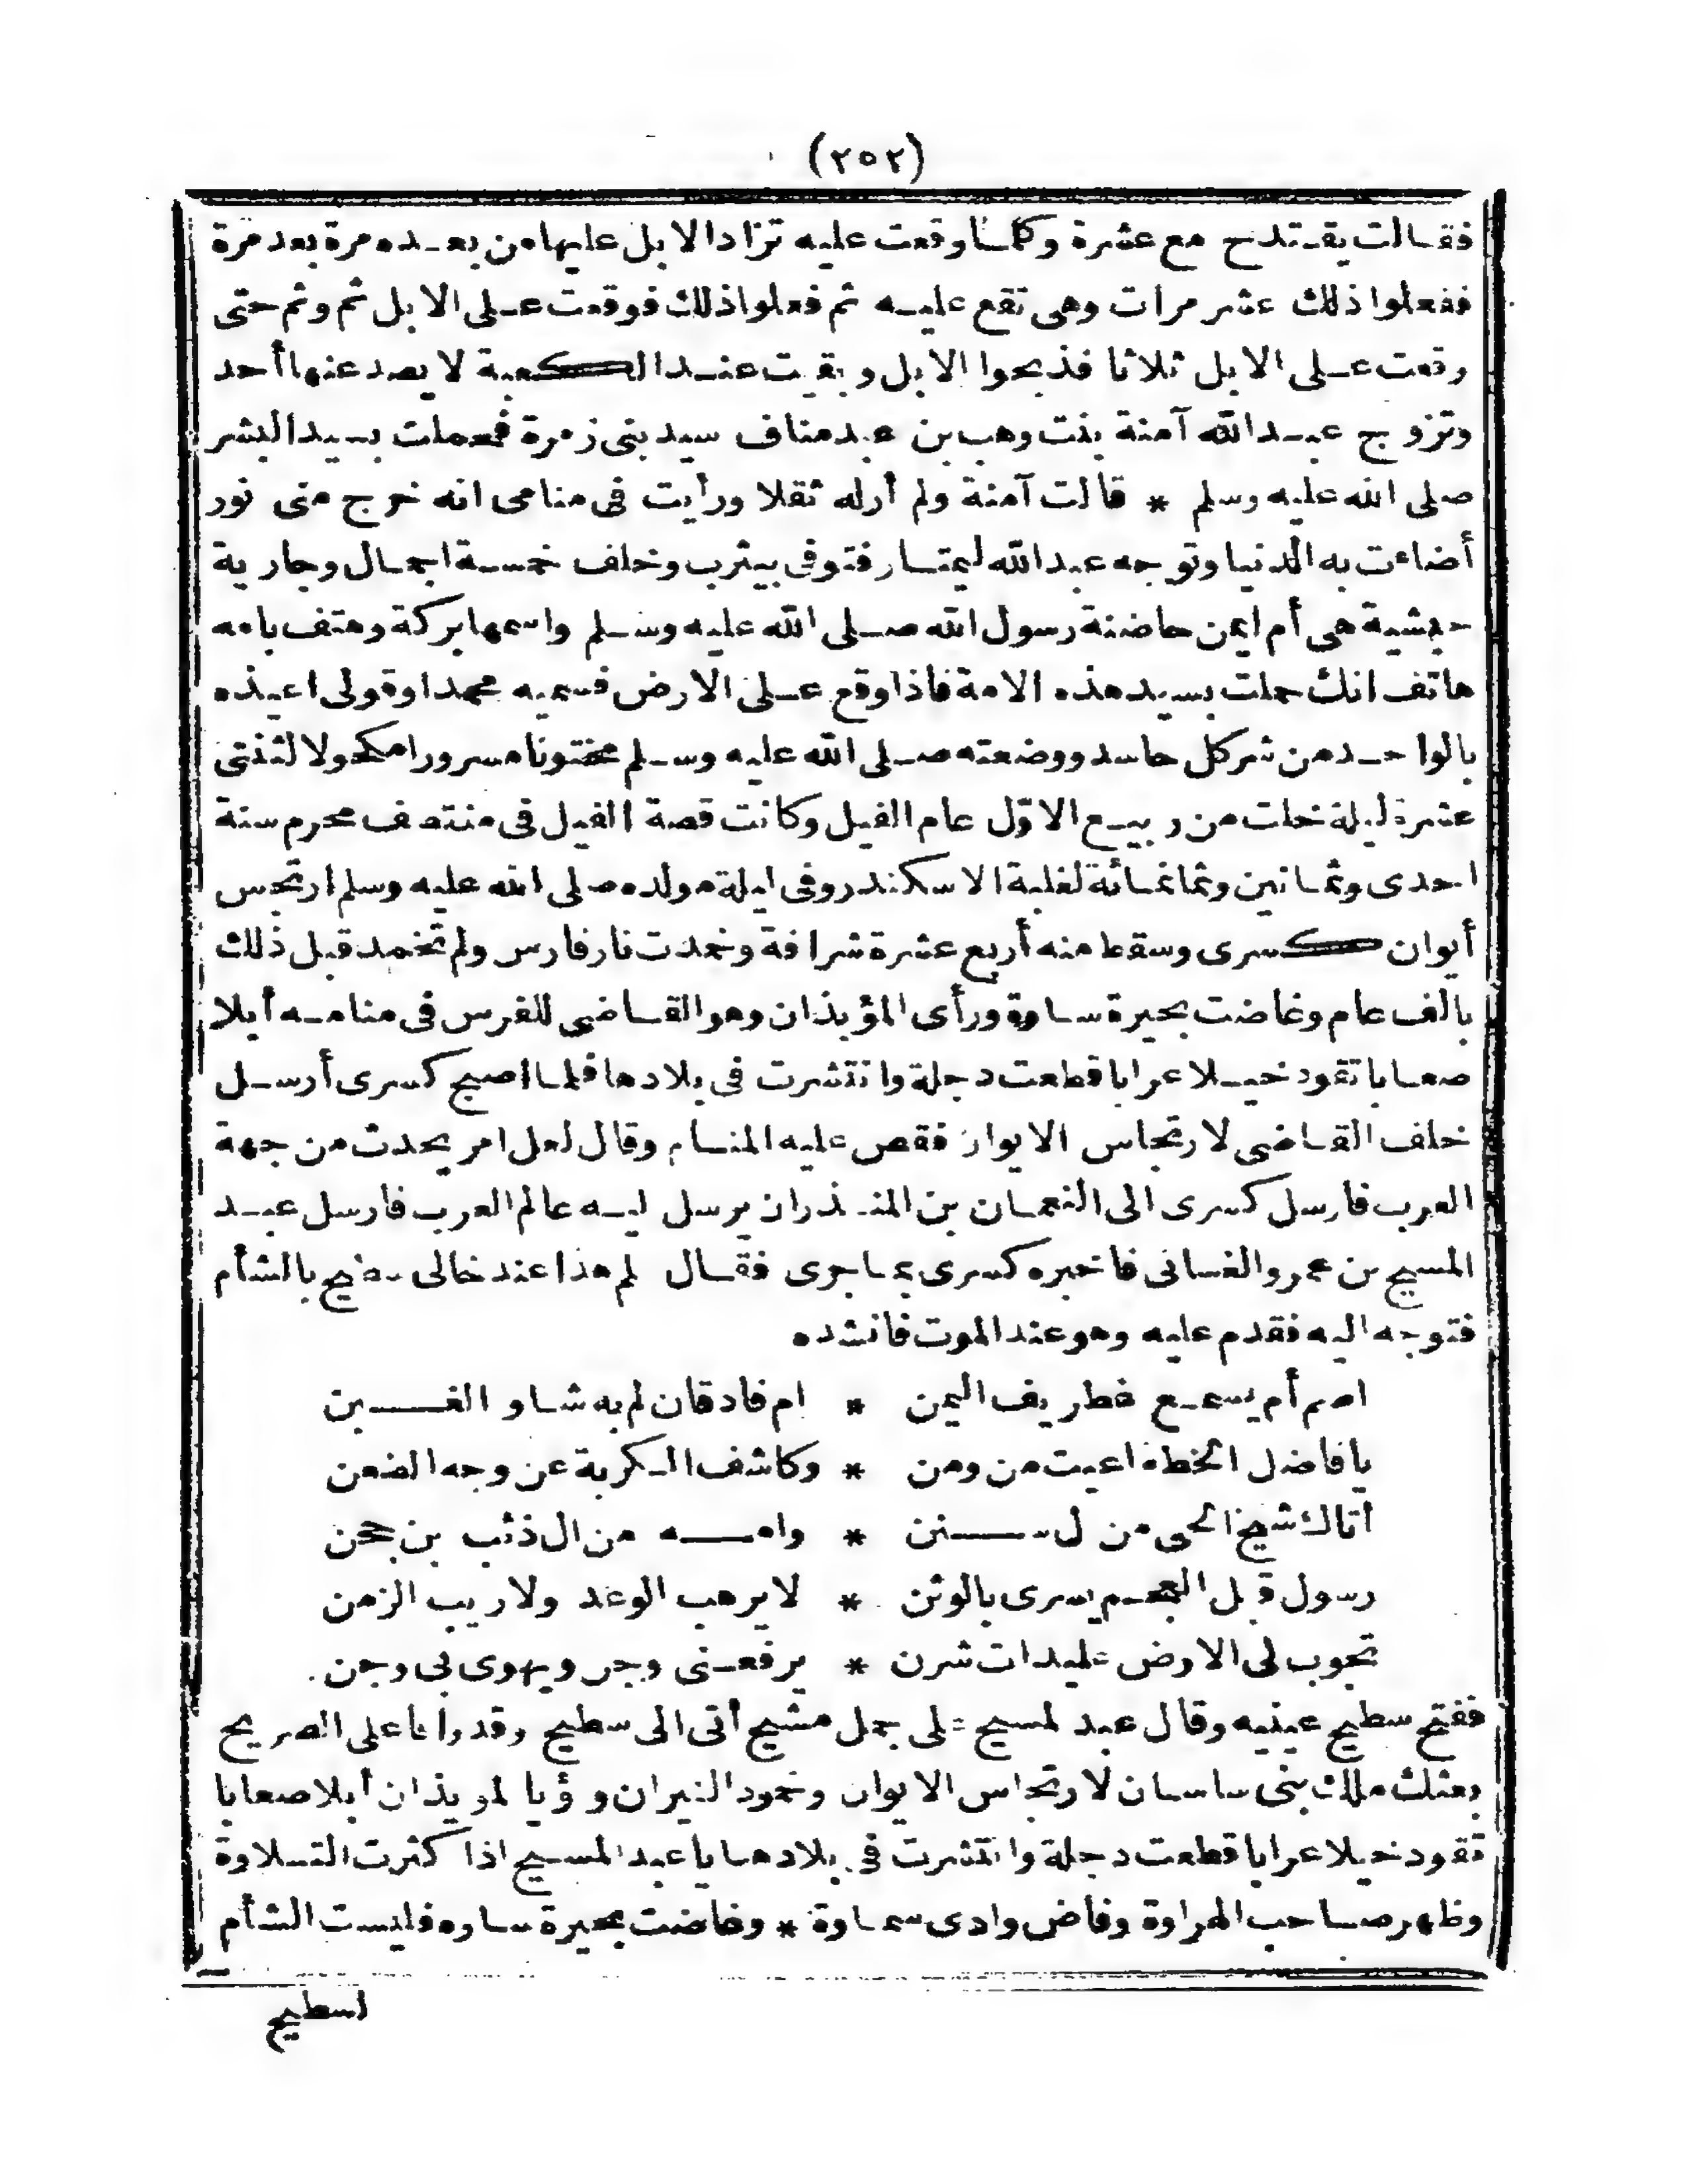 (٢٥٢)
فقالت يقتدح مع عشرة وكلما وقعت عليه تزاد الابل عليها من بعده مرة بعد مرة
ففعلوا ذلك عشر مرات وهى تقع عليه ثم فعلوا ذلك فوقعت على الابل ثم وثم حتى
وقعت على الابل ثلاثا فذبحوا الابل وبقيت عند الكعبة لا يصد عنها أحد
وتزوج عبد الله آمنة بنت وهب بن عبد مناف سيد بنى زهرة فحملت بسيد البشر
صلى الله عليه وسلم * قالت آمنة ولم أر له ثقلا ورأيت فى منامى انه خرج منى نور
أضاءت به الدنيا وتوجه عبد الله ليمتار فتوفى بيثرب وخلف خمسة اجمال وجارية
حبشية هى أم ايمن حاضنة رسول الله صلى الله عليه وسلم واسمها بركة وهتف بامه
هاتف انك حملت بسيد هذه الامة فاذا وقع على الارض فسميه محمدا وقولى اعيذه
بالواحد من شر كل حاسد ووضعته صلى الله عليه وسلم مختونا مسرورا مكحولا لثنتى
عشرة ليلة خلت من ربيع الاوّل عام الفيل وكانت قصة الفيل فى منتصف محرم سنة
احدى وثمانين وثمانمائة لغلبة الاسكندر وفى ليلة مولده صلى الله عليه وسلم ارتجس
أيوان كسرى وسقط منه أربع عشرة شرافة وخمدت نار فارس ولم تخمد قبل ذلك
بالف عام وغاضت بحيرة ساوة ورأى المؤبذان وهو القاضى للفرس فى منامه أبلا
صعابا تقود خيلا عرابا قطعت دجلة وانتشرت فى بلادها فلما اصبح كسرى أرسل
خلف القاضى لارتجاس الايوان فقص عليه المنام وقال لعل امر يحدث من جهة
العرب فارسل كسرى الى النعمان بن المنذر ان يرسل ليه عالم العرب فارسل عبد
المسيح بن عمرو الغسانى فاخبره كسرى بما جرى فقال لم هذا عند خالى سطيح بالشأم
فتوجه اليه فقدم عليه وهو عند الموت فانشده
اصم أم يسمع غطريف اليمن * ام فاد قان لم به شاو الغبن
يا فاضل الخطة اعيت من ومن * وكاشف الكربة عن وجه الضعن
أتاك شيخ الحى من ل سنن * وامه من ال ذئب بن جحن
رسول قبل العجم يسرى بالوثن * لا يرهب الوعد ولا ريب الزمن
تجوب لى الارض علبدات شرن * يرفعنى وجن ويهوى بى وجن
ففتح سطيح عينيه وقال عبد لمسيح على جمل مشيح أتى الى سطيح وقد وافا على الضريح
بعثك ملك بنى ساسان لارتجاس الايوان وخمود النيران ورؤيا لموبذان أبلا صعابا
تقود خيلا عرابا قطعت دجلة وانتشرت فى بلادها يا عبد المسيح اذا كثرت التلاوة
وظهر صاحب الهراوة وفاض وادى سماوة * وغاضت بحيرة ساوه فليست الشأم
لسطيح